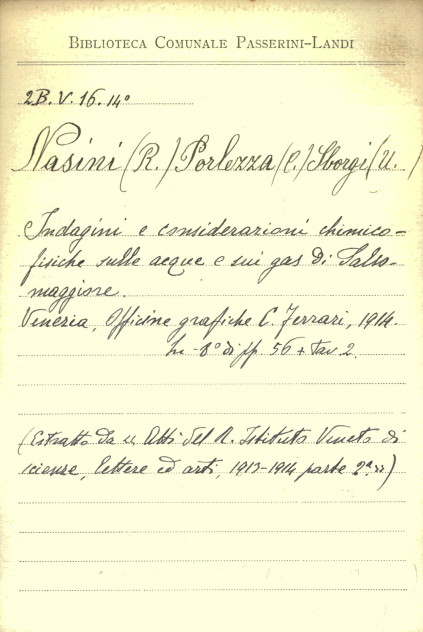 BIBLIOTECA COMUNALE PASSERINI-LANDI
2B.V.16.14°
Nasini (R.) Porlezza (C.) Sborgi (U.)
Indagini e considerazioni chimico-
fisiche sulle acque e sui gas di Salso-
maggiore.
Venezia, Officine grafiche C. Ferrari, 1914.
In-8° di pp. 56 + tav. 2.
(Estratto da "Atti del R. Istituto Veneto di
scienze, lettere ed arti, 1913-1914 parte 2ª")